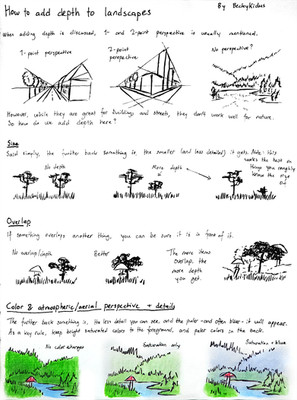 How to add depth to landscapes
By BeckyKidus
When adding depth is discussed, 1- and 2-point perspective is usually mentioned.
1-point perspective
2-point
perspective
No perspective?
However, while they are great for buildings and streets, they don't work well for nature.
So how do we add depth here?
Size
Said simply, the further back something is, the smaller (and less detailed) it gets. Note: this
works the best on
things you roughly
know the size
of
No depth
More depth
Overlap
If something overlaps another thing, you can be sure it is in front of it.
No overlap/depth
Better
The more items
overlap, the
more depth
you get.
Color & atmospheric/aerial perspective + details
The further back something is, the less detail you can see, and the paler - and often bluer - it will appear.
As a key rule, keep bright saturated colors to the foreground, and paler colors in the back.
No color changes
Saturation only
Saturation + blue